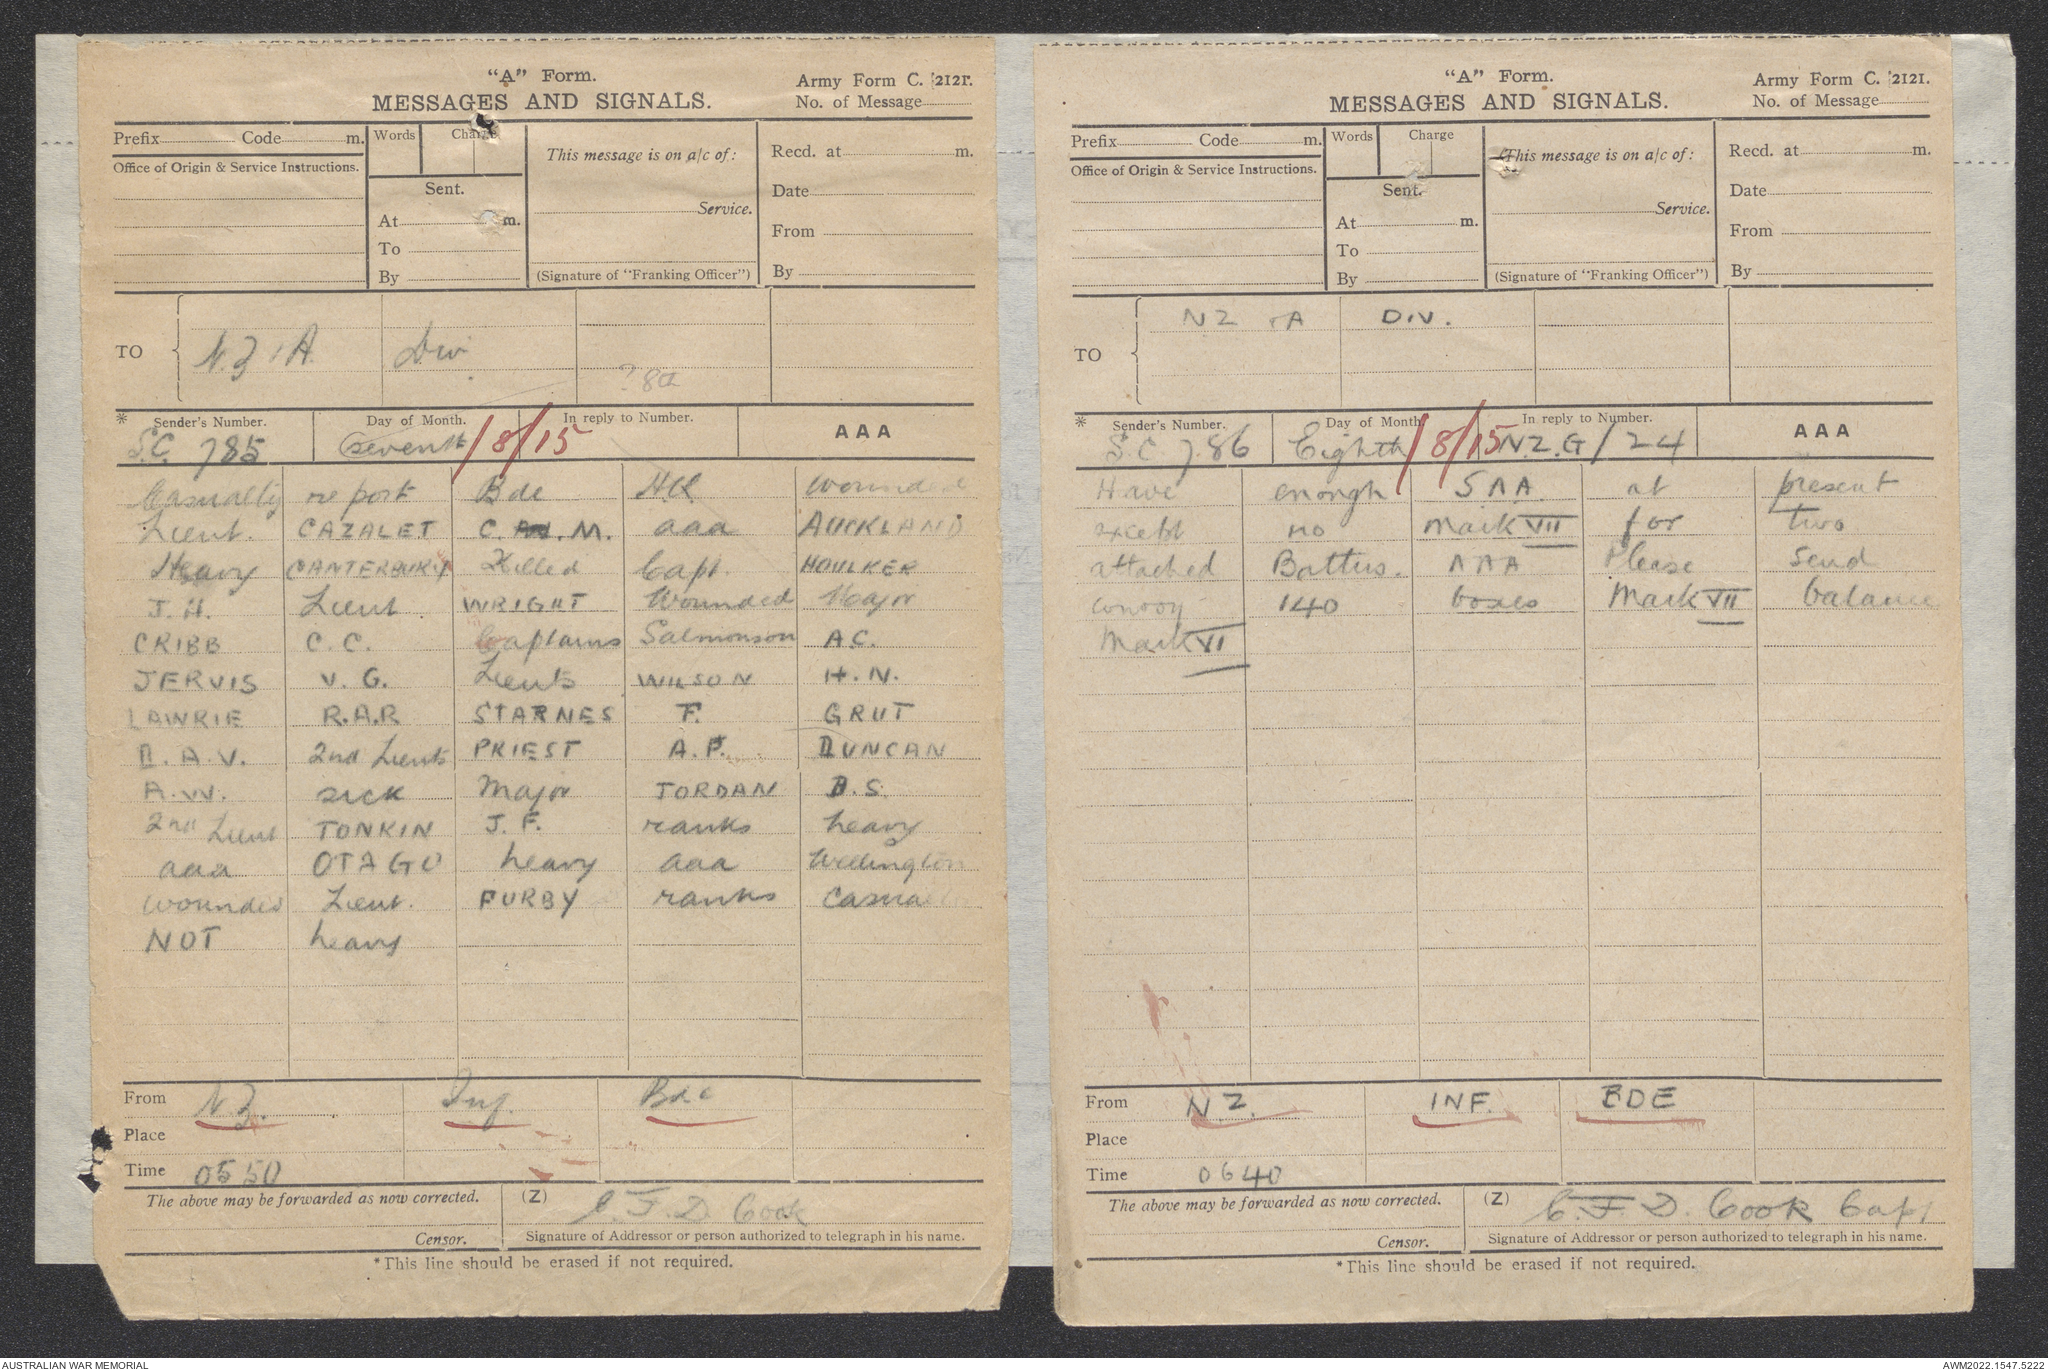 "A" Form.
Army Form C. 2121.
MESSAGES AND SIGNALS.
No. of Message
Prefix Code m.
Words Charge
This message is on a/c of:
Recd. at m.
Office of Origin & Service Instructions.
Sent.
Date
Service.
At m.
From
To
By
(Signature of "Franking Officer")
By
TO N.Z & A Div
? 8th
* Sender's Number. Day of Month. In reply to Number. AAA
S.C. 785 Seventh /8/15
Casualty report Bde HQ wounded
Lieut. CAZALET C. M. aaa AUCKLAND
Heavy CANTERBURY Killed Capt. HOULKER
J.H. Lieut WRIGHT Wounded Major
CRIBB C.C. Captains Salmonson A.C.
JERVIS V.G. Lieuts WILSON H.N.
LAWRIE R.A.R STARNES F. GRUT
D.A.V. 2nd Lieuts PRIEST A.P. DUNCAN
A.W. sick Major JORDAN B.S.
2nd Lieut TONKIN J.F. ranks heavy
aaa OTAGO heavy aaa Wellington
wounded Lieut. FURBY ranks
NOT heavy
From N.Z. Inf. Bde
Place
Time 0550
The above may be forwarded as now corrected. (Z) C.F.D. Cook
Censor. Signature of Addressor or person authorized to telegraph in his name.
*This line should be erased if not required.
"A" Form.
Army Form C. 2121.
MESSAGES AND SIGNALS.
No. of Message
Prefix Code m.
Words Charge
This message is on a/c of:
Recd. at m.
Office of Origin & Service Instructions.
Sent.
Date
Service.
At m.
From
To
By
(Signature of "Franking Officer")
By
TO NZ & A DIV.
* Sender's Number. Day of Month In reply to Number. AAA
S.C. 786 Eighth /8/15 N.Z.G/24
Have enough SAA at present
except no Mark VII for two
attached Battns. AAA Please send
convoy 140 boxes Mark VII balance
Mark VI
From NZ. INF. BDE
Place
Time 0640
The above may be forwarded as now corrected. (Z) C.F.D. Cook Capt
Censor. Signature of Addressor or person authorized to telegraph in his name.
*This line should be erased if not required.
AUSTRALIAN WAR MEMORIAL
AWM2022.1547.5222